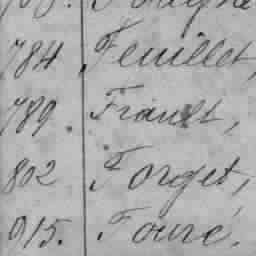 784 Feuillet,
789. Friault,
802 Forget,
915. Fouré.